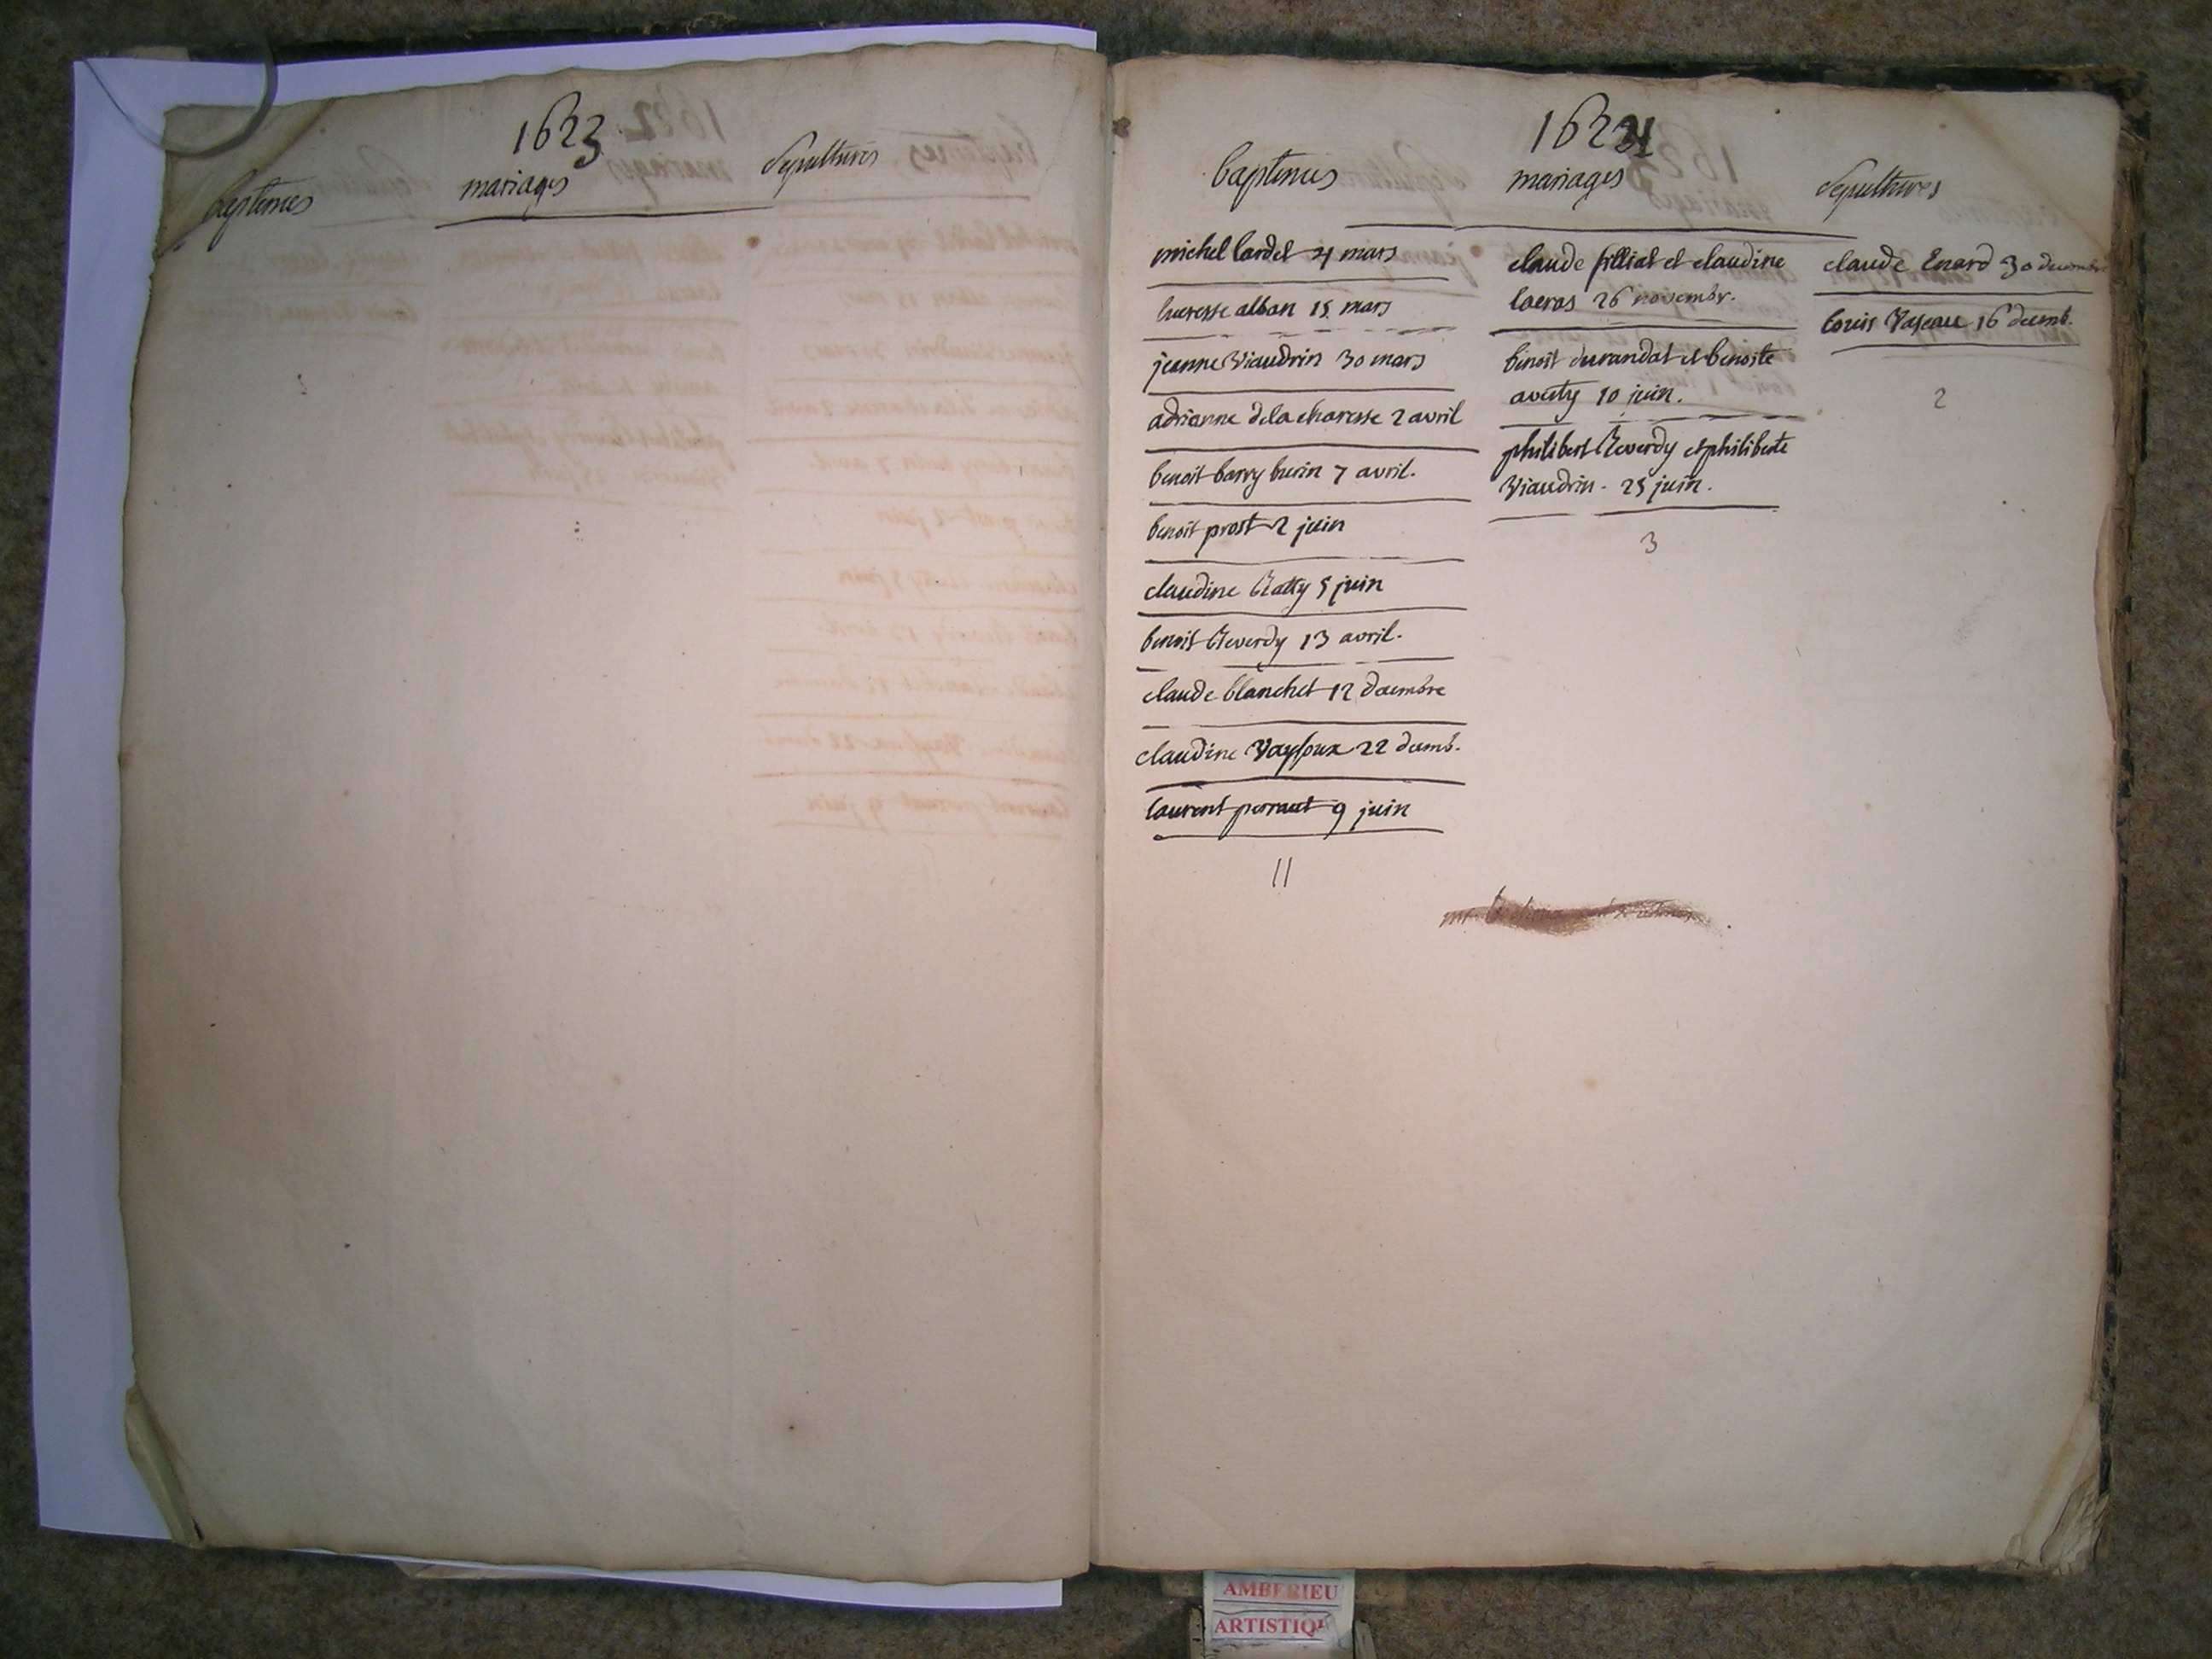 1623
mariages
Sepultures
baptemes
1621
baptemes
mariages
Sepultures
michel lardet 4 mars
lucresse alban 15 mars
jeanne Viaudrin 30 mars
adrianne dela charesse 2 avril
benoit barry burin 7 avril.
benoit prost 2 juin
claudine Ratty 5 juin
benoit Reverdy 13 avril.
claude blanchet 12 decembre
claudine Vayssoux 22 decemb.
laurent perraut 9 juin
11
claude filliat et claudine
lacras 26 novembr.
benoit durandat et benoite
avety 10 juin.
philibert Reverdy et philiberte
Viaudrin. 25 juin.
3
claude Enard 30 decembre
louis Vaseau 16 decemb.
2
AMBERIEU
ARTISTIQ